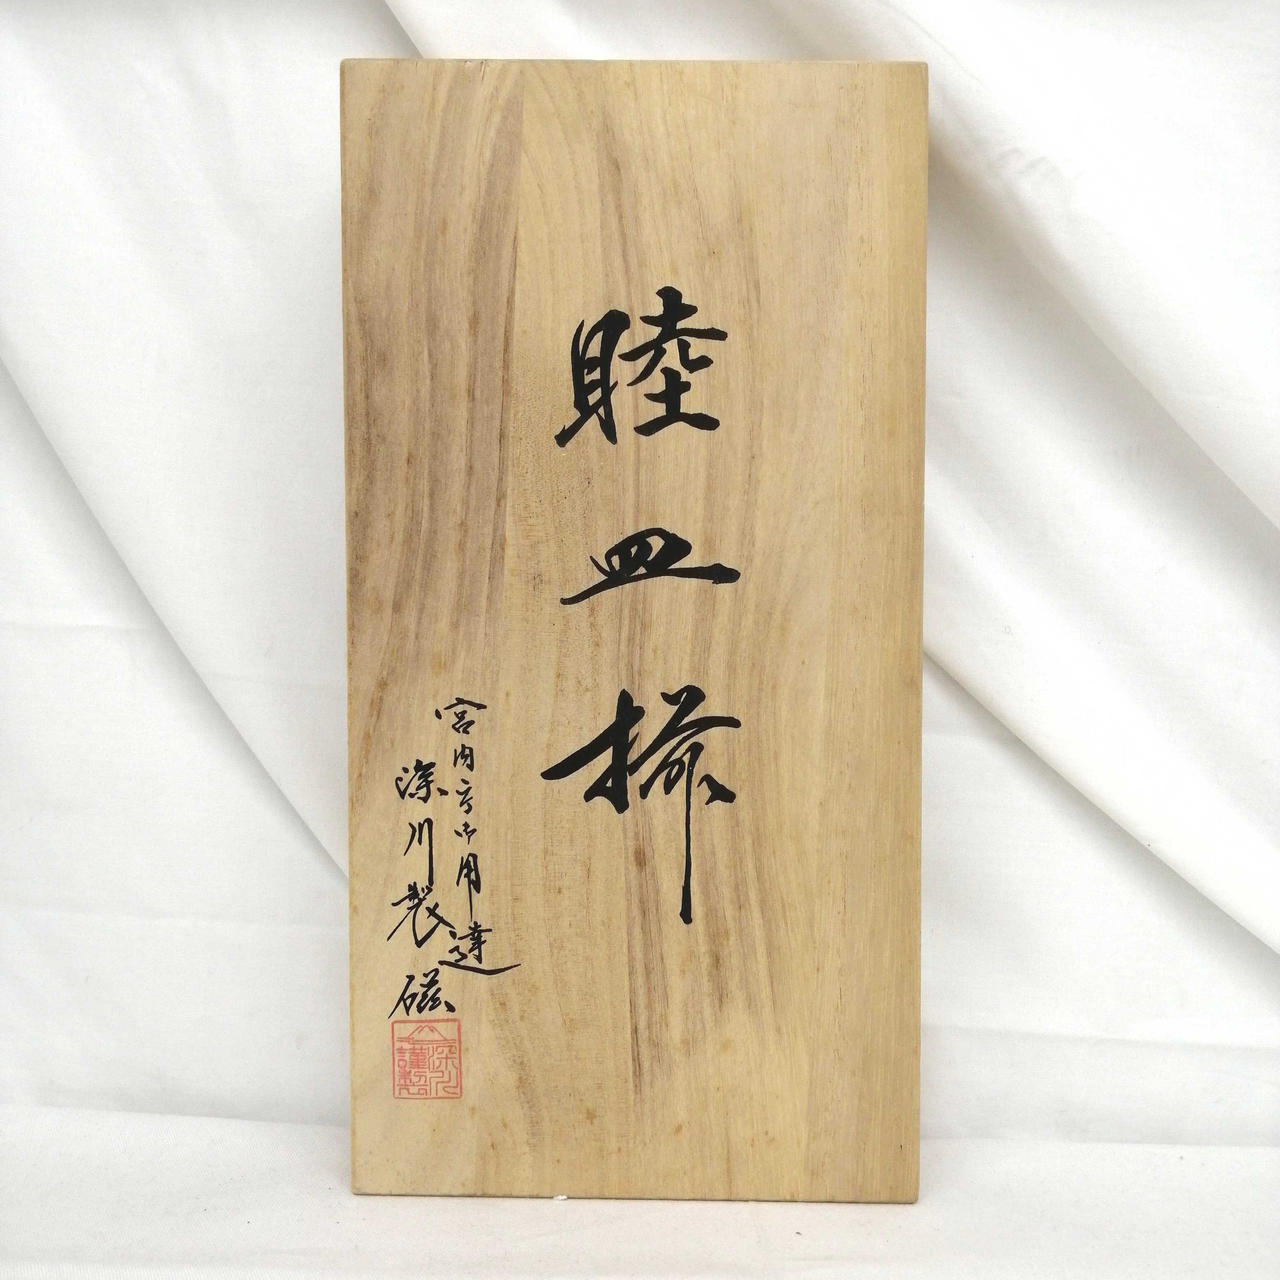 睦皿揃
宮内庁御用達
深川製磁
深川
謹製